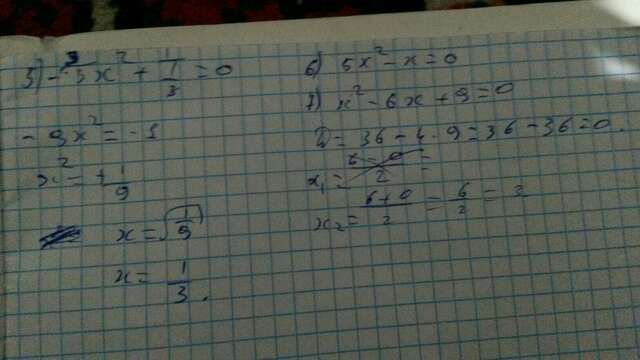 5) -3x² + 1/3 = 0
-9x² = -1
x² = +1/9
x = √1/9
x = 1/3.
6) 5x² - x = 0
7) x² - 6x + 9 = 0
D = 36 - 4 · 9 = 36 - 36 = 0.
x₁ = 6 - 0 / 2 =
x₂ = 6 + 0 / 2 = 6/2 = 3